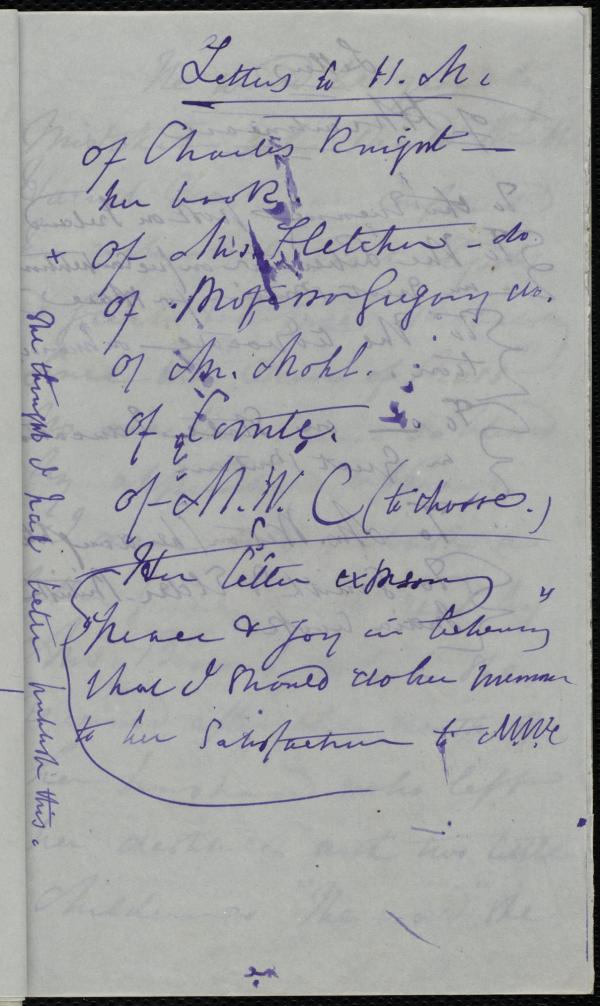 Letters to H. M.
of Charles Knight —
her book.
+ of Mrs. Fletcher - do.
of Professor Gregory do.
of M. Mohl.
of Comte.
of M. W. C (to choose.)
Her letter expressing
"peace & joy in believing"
that I should do her Memoir
to her satisfaction to MWC
She thought I had better publish this.